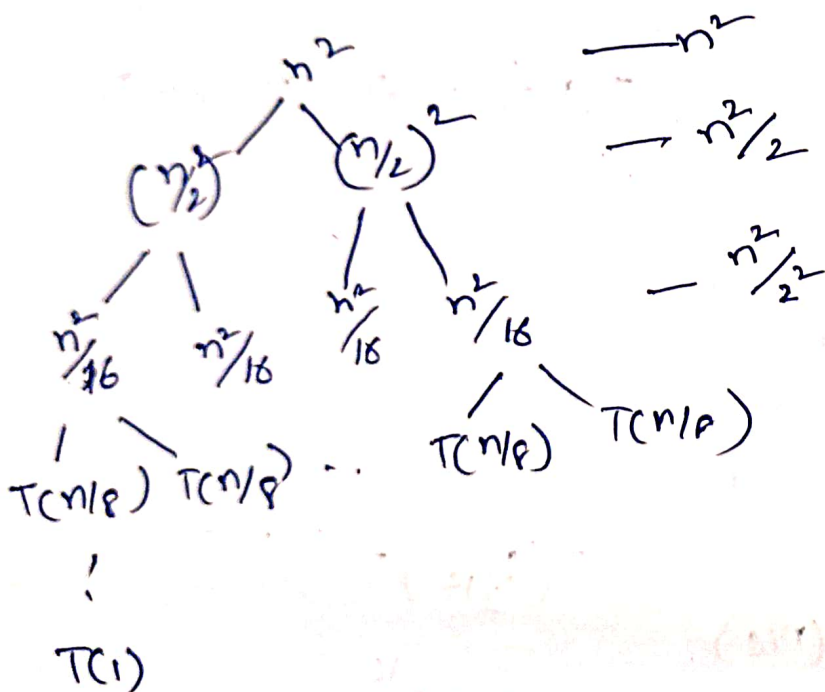 n² — n²
(n/2)² (n/2)² — n²/2
n²/16 n²/16 n²/16 n²/16 — n²/2²
T(n/8) T(n/8) .. T(n/8) T(n/8)
!
T(1)